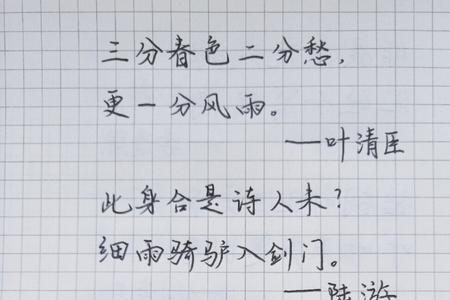 三分春色二分愁,
更一分风雨。
——叶清臣
此身合是诗人未?
细雨骑驴入剑门。
——陆游